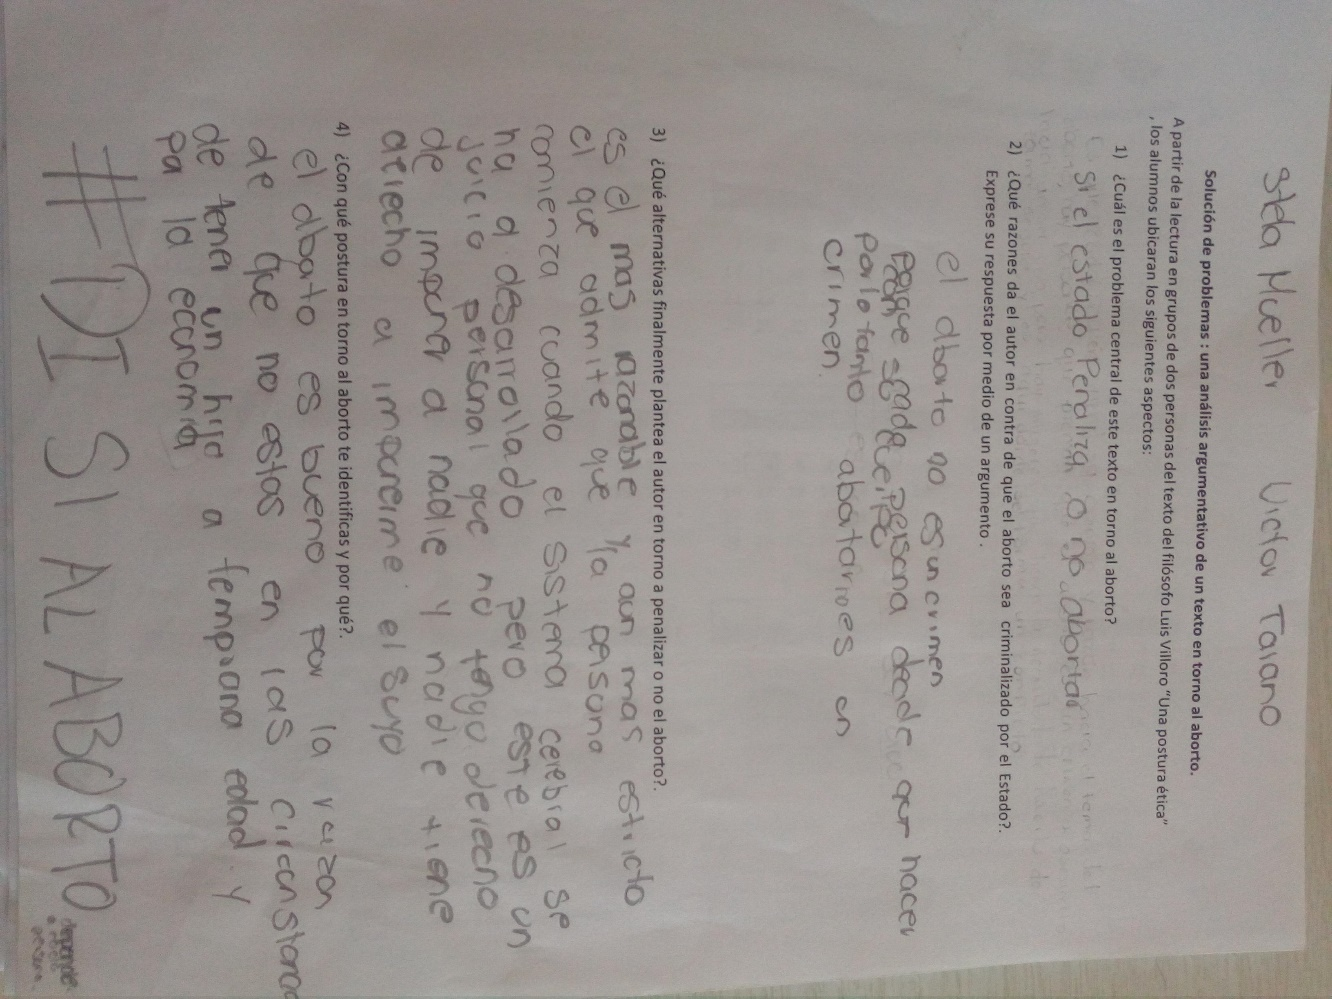 Stda Mueller Victor Taiano
Solución de problemas : una análisis argumentativo de un texto en torno al aborto.
A partir de la lectura en grupos de dos personas del texto del filósofo Luis Villoro “Una postura ética”
, los alumnos ubicaran los siguientes aspectos:
1) ¿Cuál es el problema central de este texto en torno al aborto?
Si el estado Penaliza o no abortar
2) ¿Qué razones da el autor en contra de que el aborto sea criminalizado por el Estado?.
Exprese su respuesta por medio de un argumento .
el aborto no es un crimen
porque cada persona decide que hacer
por lo tanto abortar no es un
crimen.
3) ¿Qué alternativas finalmente plantea el autor en torno a penalizar o no el aborto?.
es el mas razonable y aun mas estricto
el que admite que la persona
comienza cuando el sistema cerebral se
ha a desarrollado pero este es un
juicio personal que no tengo derecho
de imponer a nadie y nadie tiene
derecho a imponerme el suyo
4) ¿Con qué postura en torno al aborto te identificas y por qué?.
el aborto es bueno por la razon
de que no estas en las circunstancia
de tener un hijo a temprana edad y
pa la economia
#DI SI AL ABORTO
depende